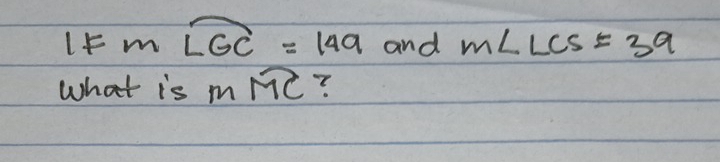 IF m LGC = 149 and m∠LCS = 39
What is m MC?